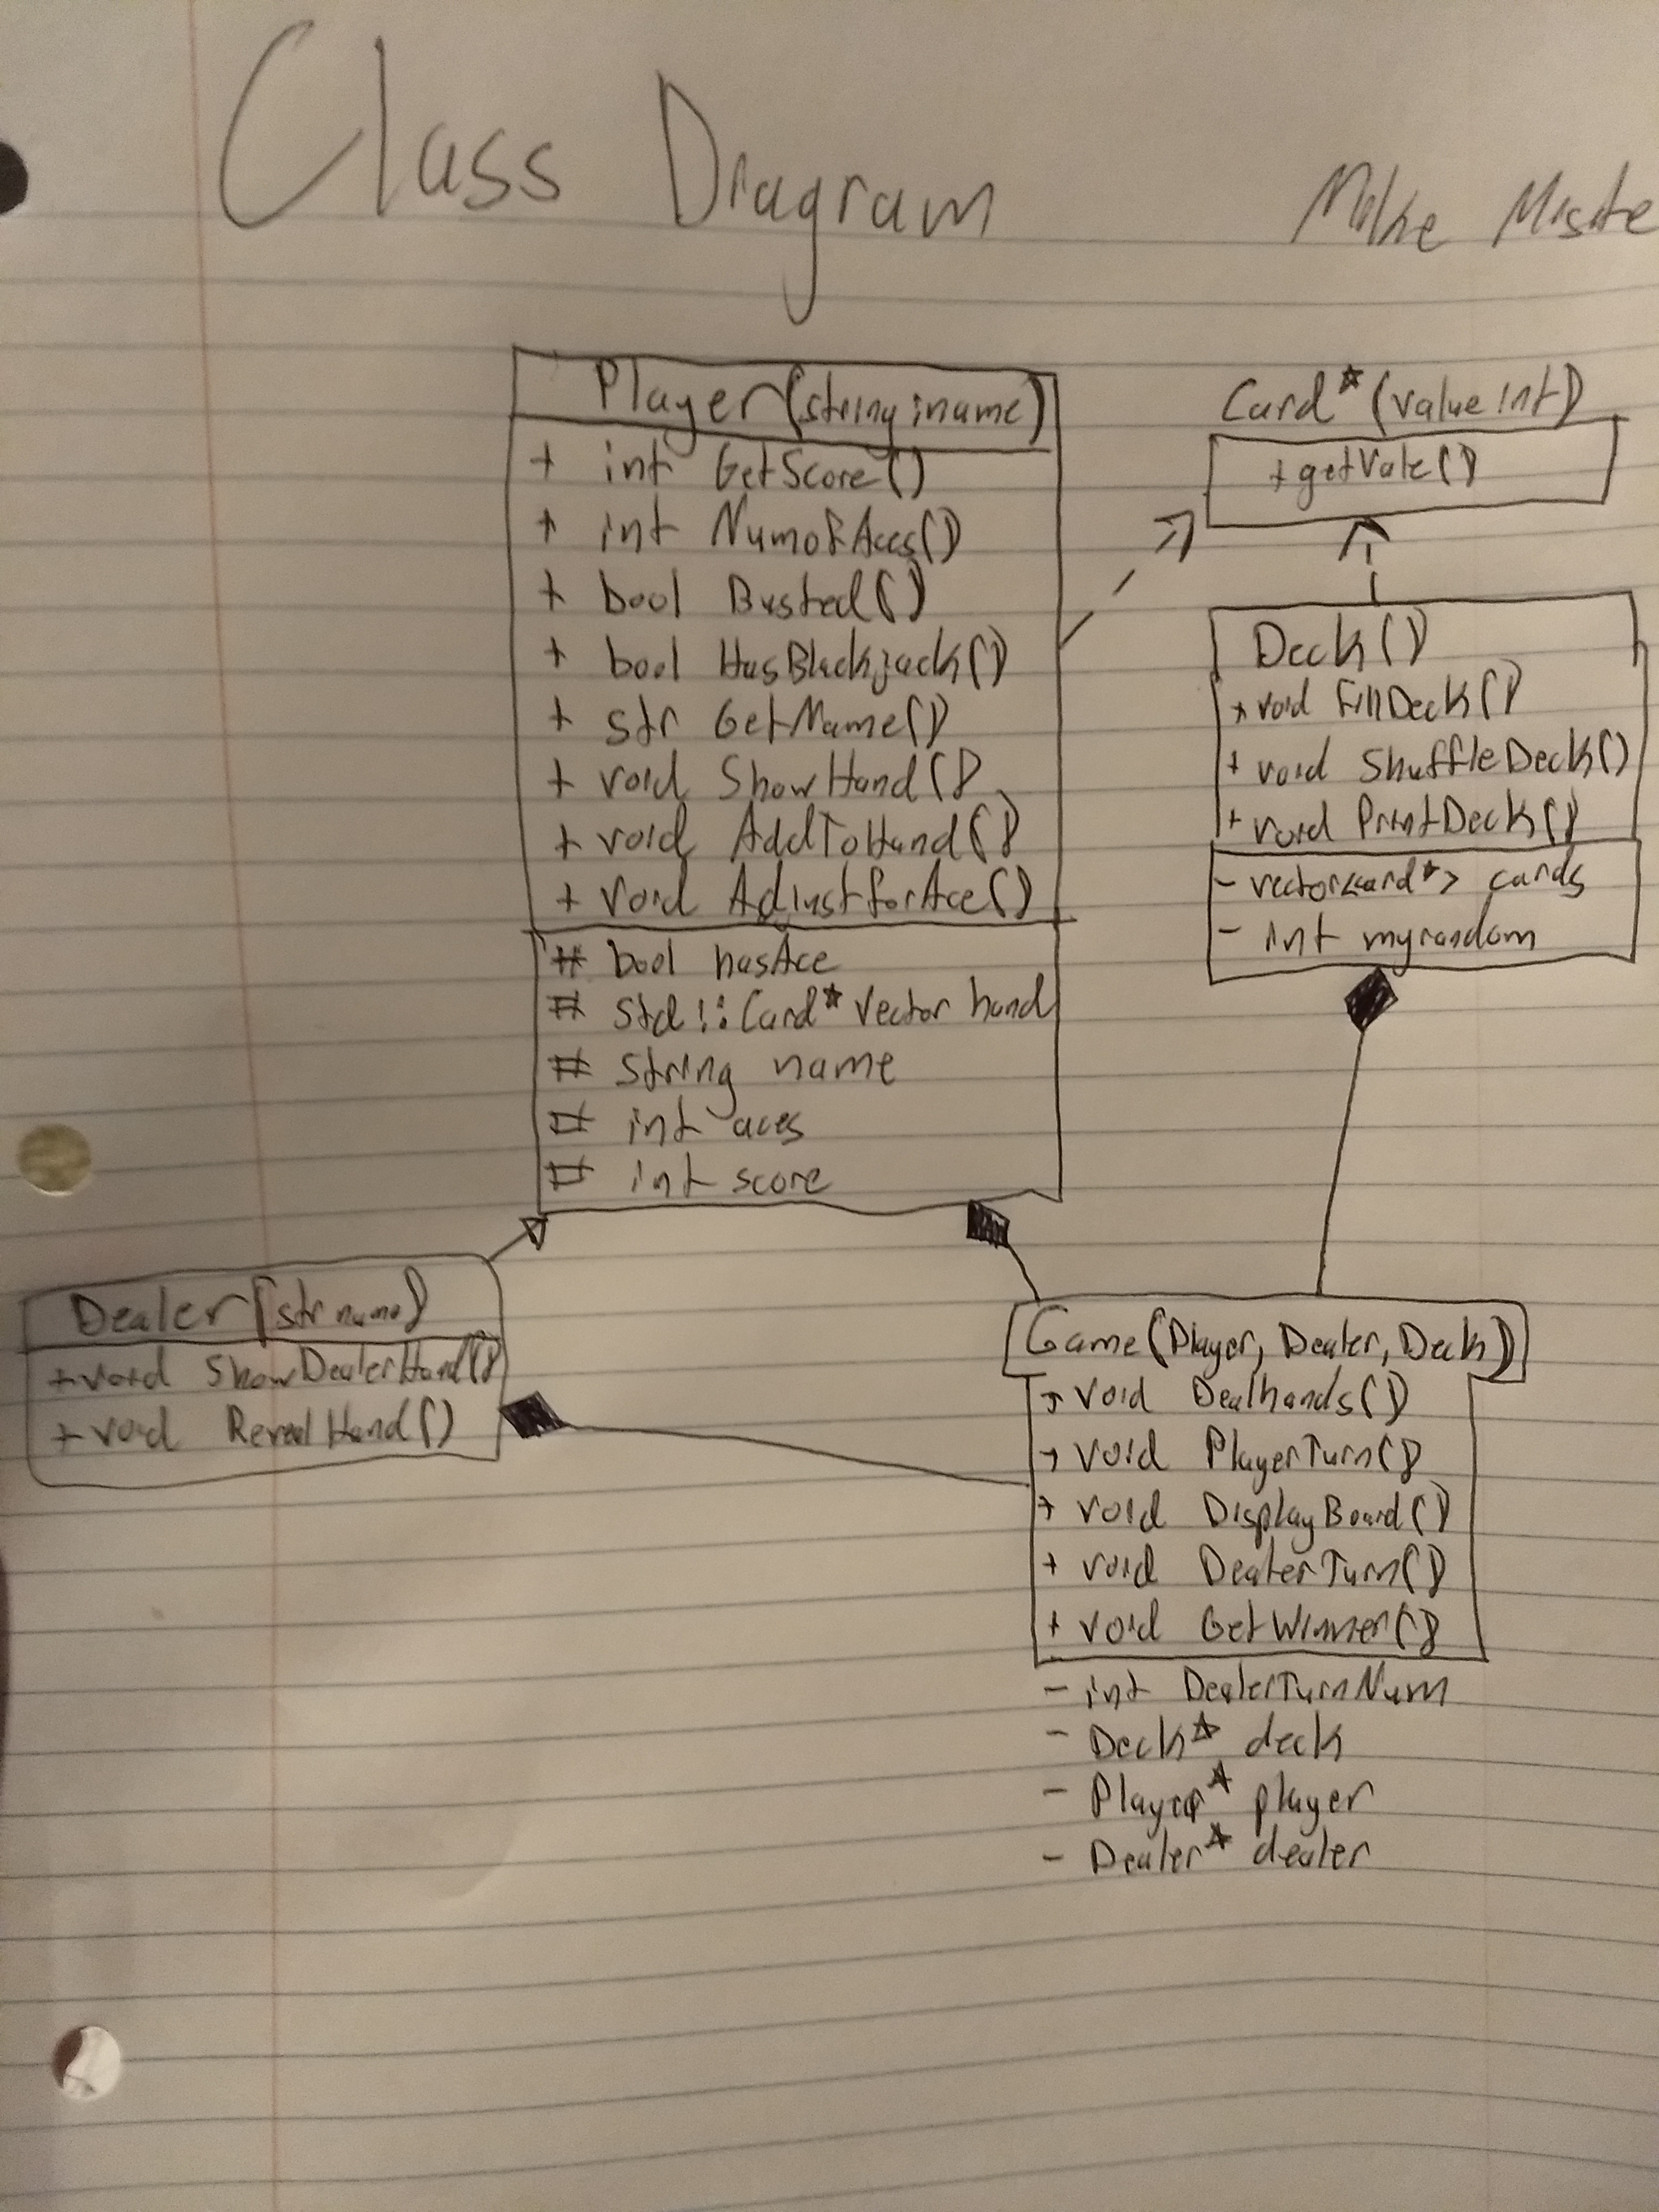 Class Diagram
Player(string iname)
+ int GetScore()
+ int NumofAces()
+ bool Busted()
+ bool HasBlackjack()
+ str GetName()
+ void ShowHand()
+ void AddToHand()
+ void AdjustforAce()
# bool hasAce
# std::Card* vector hand
# string name
# int aces
# int score
Card*(value int)
+getVale()
Deck()
+ void FillDeck()
+ void ShuffleDeck()
+ void PrintDeck()
- vector<card*> cards
- int myrandom
Dealer(str name)
+void ShowDealerHand()
+ void RevealHand()
Game(Player, Dealer, Deck)
+ void Dealhands()
+ void PlayerTurn()
+ void DisplayBoard()
+ void DealerTurn()
+ void GetWinner()
- int DealerTurnNum
- Deck* deck
- Player* player
- Dealer* dealer